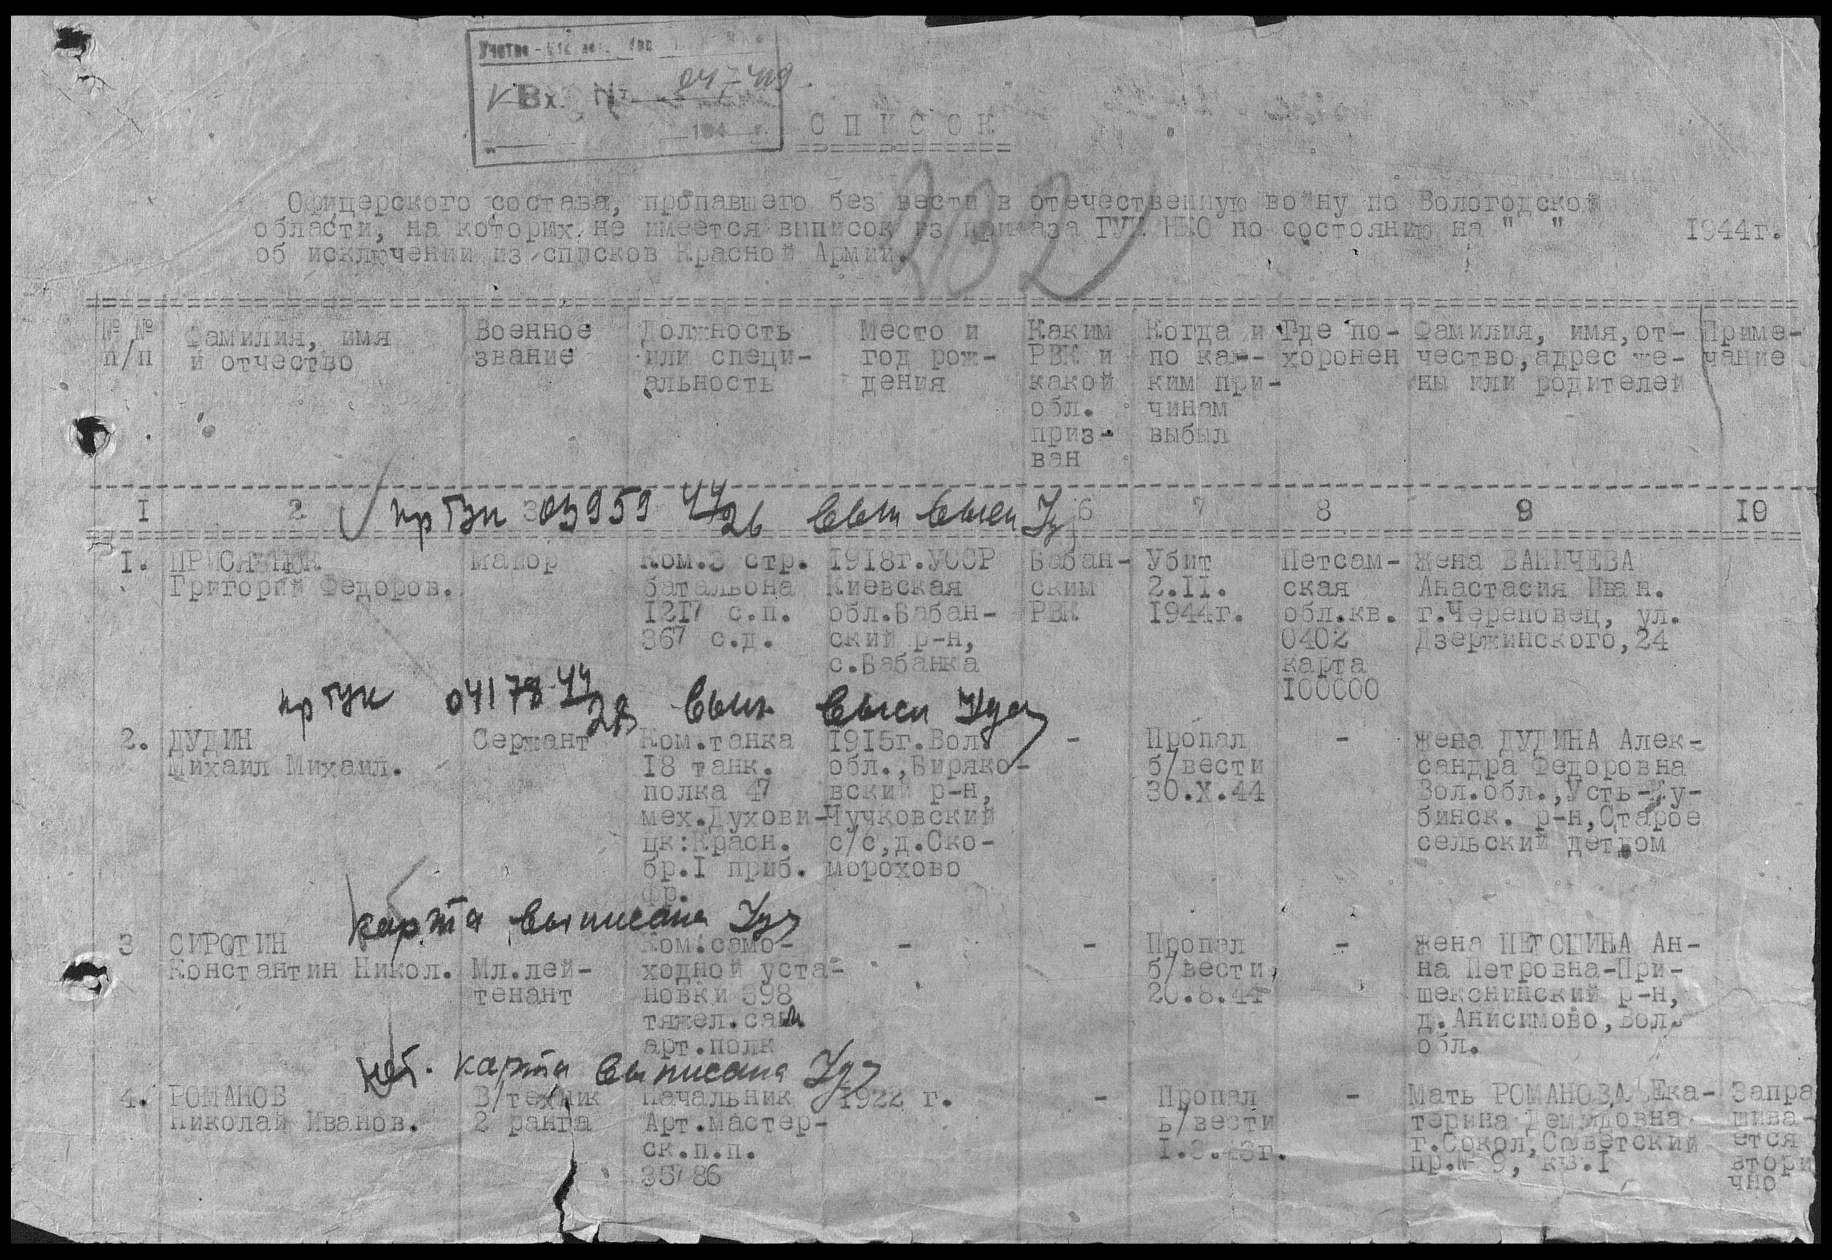 Учетно-
Вх. № 047419
194 г.
СПИСОК
232
Офицерского состава, пропавшего без вести в отечественную войну по Вологодской
области, на которих не имеется выписок из приказа ГУК НКО по состоянию на " " 1944г.
об исключении из списков Красной Армии.
№ № п/п
Фамилия, имя
и отчество
Военное
звание
Должность
или специ-
альность
Место и
год рож-
дения
Каким
РВК и
какой
обл.
приз-
ван
Когда и
по ка-
ким при-
чинам
выбыл
Где по-
хоронен
Фамилия, имя, от-
чество, адрес же-
ны или родителей
Приме-
чание
I 2 3 6 7 8 9 I0
пр ГУК 03959 44/26
I.
Григорий Федоров.
майор
Ком.3 стр.
батальона
I2I7 с.п.
367 с.д.
I9I8г.УССР
Киевская
обл.Бабан-
ский р-н,
с.Бабанка
Бабан-
ским
РВК
Убит
2.II.
I944г.
Петсам-
ская
обл.кв.
0402
карта
I00000
жена ВАНИЧЕВА
Анастасия Иван.
г.Череповец, ул.
Дзержинского,24
пр ГУК 04178 44/28
2.
ДУДИН
Михаил Михаил.
Сержант
Ком.танка
I8 танк.
полка 47
мех.Духови-
цк:Красн.
бр.I приб.
фр.
I9I5г.Вол.
обл.,Биряко-
вский р-н,
Чучковский
с/с,д.Ско-
морохово
-
Пропал
б/вести
30.X.44
-
жена ДУДИНА Алек-
сандра Федоровна
Вол.обл.,Усть-Ку-
бинск. р-н,Старое
сельский детдом
карта выписана
3
СИРОТИН
Константин Никол.
Мл.лей-
тенант
Ком.само-
ходной уста-
новки 398
тяжел.сам.
арт.полк
-
-
Пропал
б/вести,
20.8.44
-
жена ПЕТОШИНА Ан-
на Петровна-При-
шекснинский р-н,
д.Анисимово,Вол.
обл.
нет. карта выписана
4.
РОМАНОВ
Николай Иванов.
В/техник
2 ранга
Начальник
Арт.мастер-
ск.п.п.
35786
I922 г.
-
Пропал
б/вести
I.3.43г.
-
Мать РОМАНОВА Ека-
терина Демидовна
г.Сокол,Советский
пр.№ 9, кв.I
Запра
шива-
ется
втори
чно